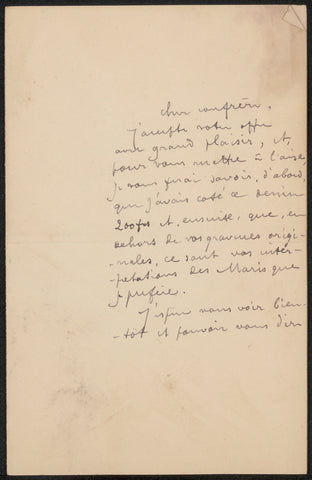 cher confrère,
J'accepte votre offre
avec grand plaisir, et,
pour vous mettre à l'aise,
je vous ferai savoir, d'abord,
que j'avais coté ce dessin
200 frs et, ensuite, que, en
dehors de vos gravures origi-
nales, ce sont vos inter-
prétations des Maris que
je préfère.
J'espère vous voir bien-
-tôt et pouvoir vous dire